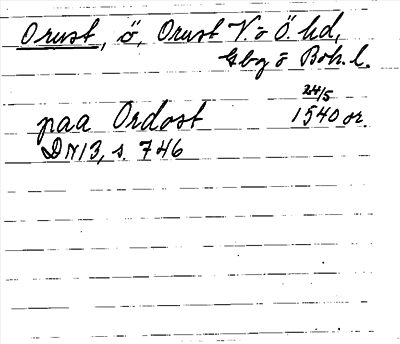 Orust, ö, Orust V. o Ö. hd,
Gbg o Boh. l.
24/5
paa Ordost 1540 or.
DN 13, s. 746